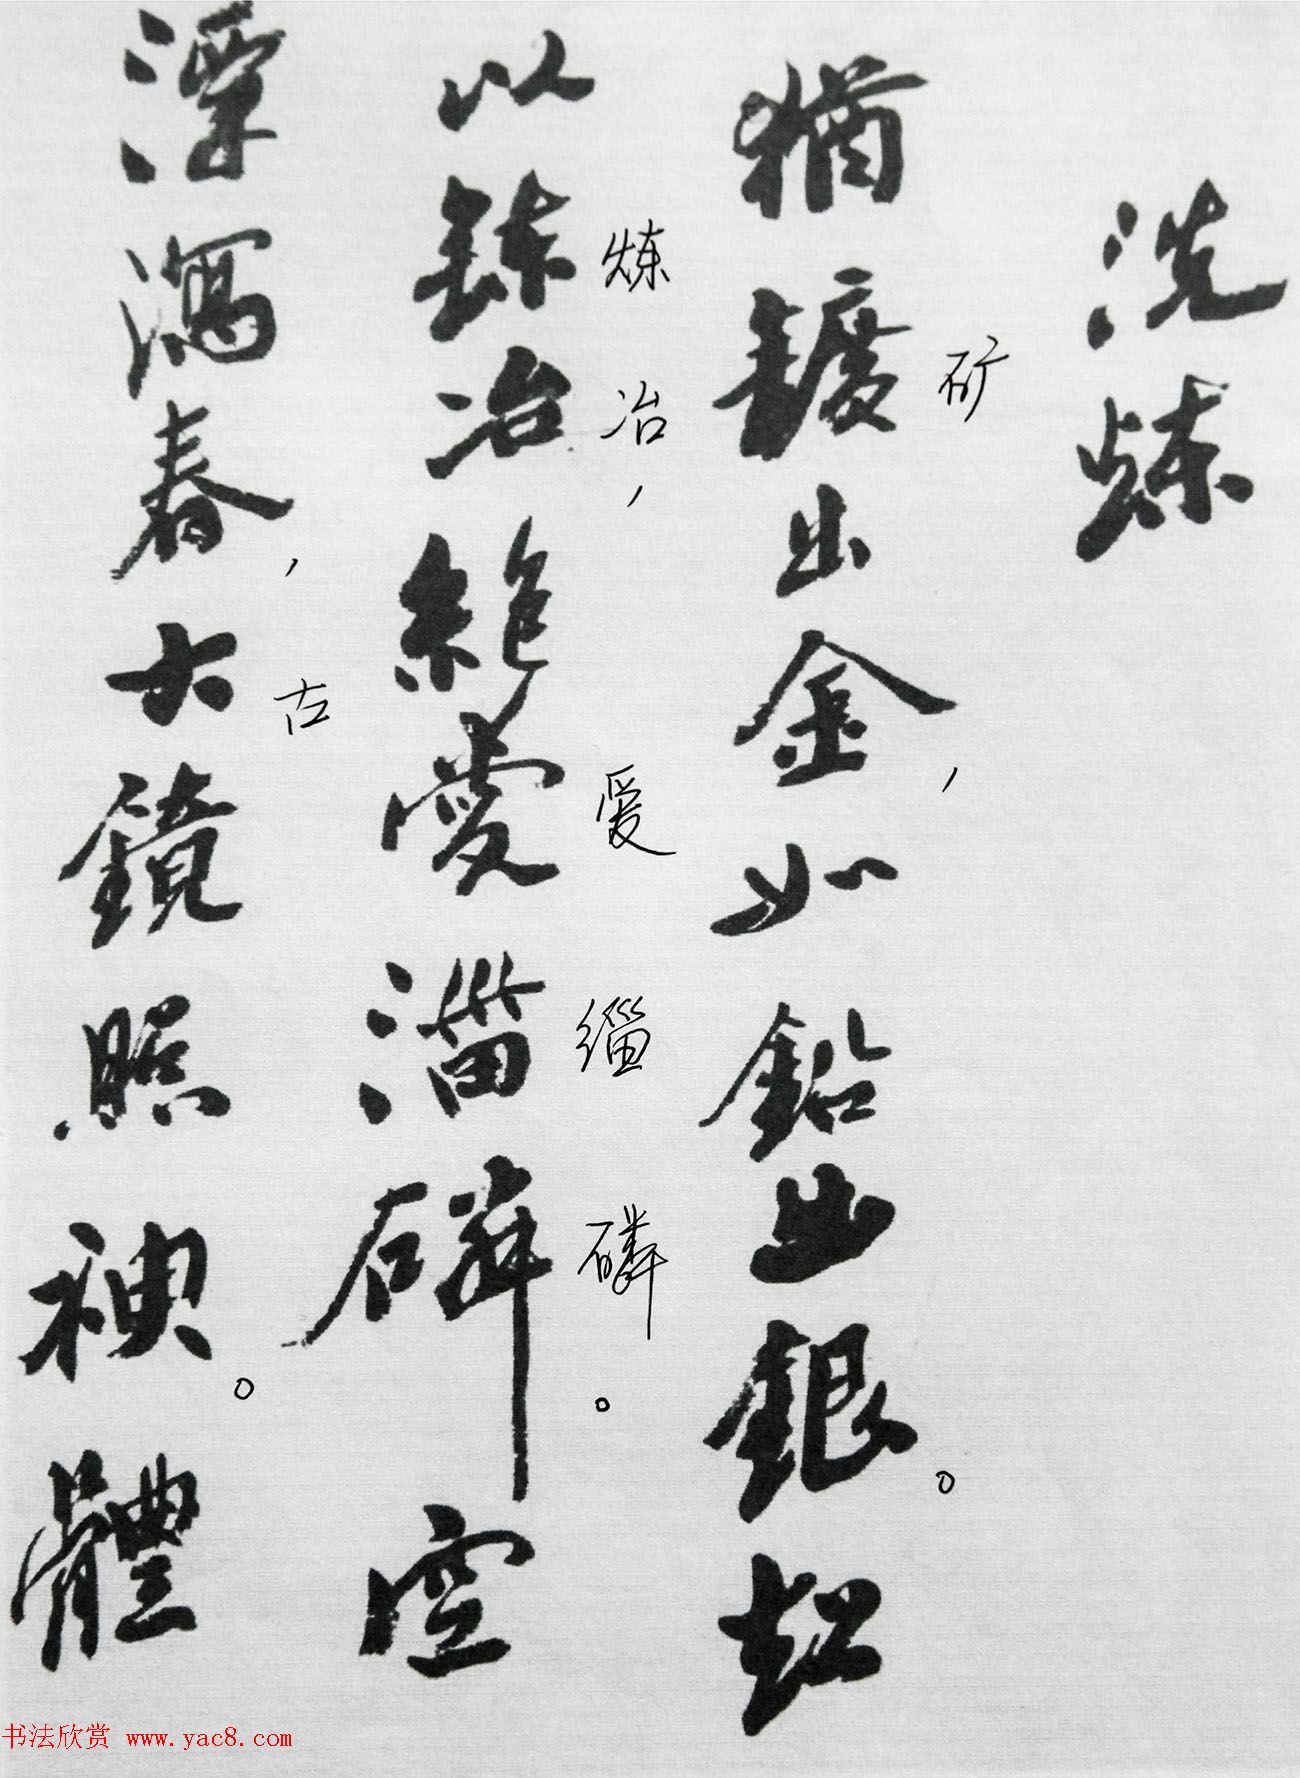 洗煉
猶鑛出金，如鉛出銀。超
矿
心鍊冶，絕愛淄磷。空
炼冶爱缁磷
潭瀉春，古鏡照神。體
古
书法欣赏 www.yac8.com